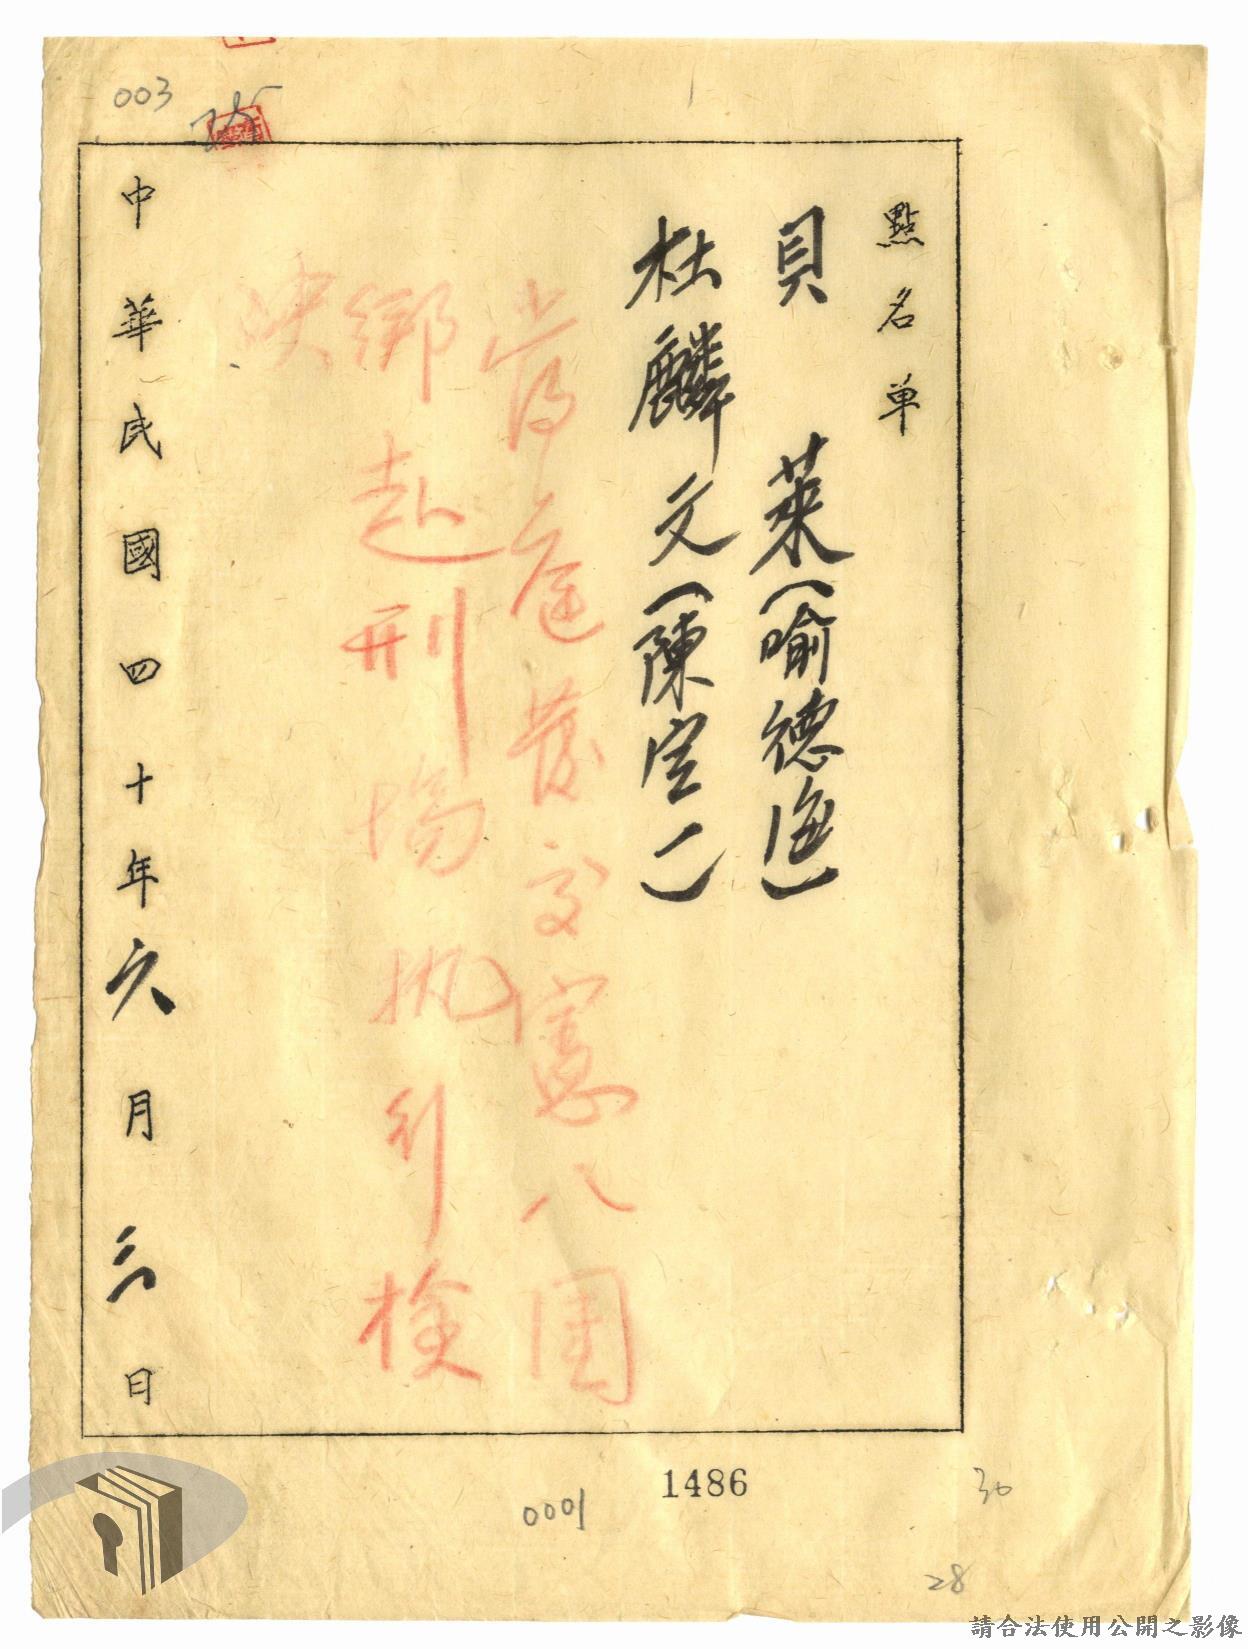 003
點名單
貝萊(喻德海)
杜麟文(陳定二)
當庭發交憲八團
綁赴刑場執行槍
決
中華民國四十年六月三日
1486
0001
30
28
請合法使用公開之影像